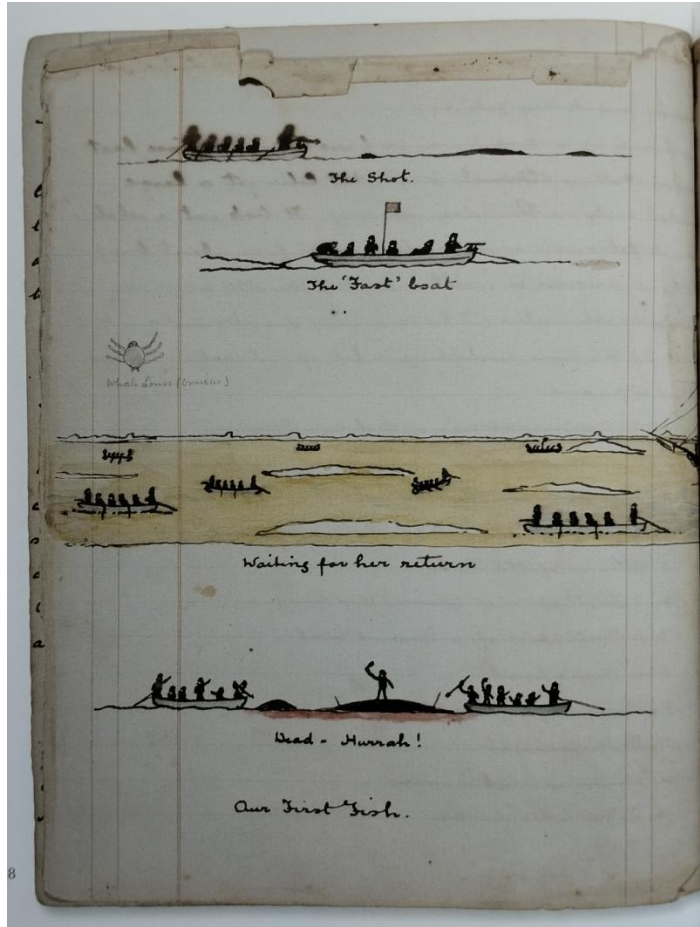 The Shot.
The 'Fast' boat
Whale Louse (
Waiting for her return
Dead - Hurrah!
Our First Fish.
8